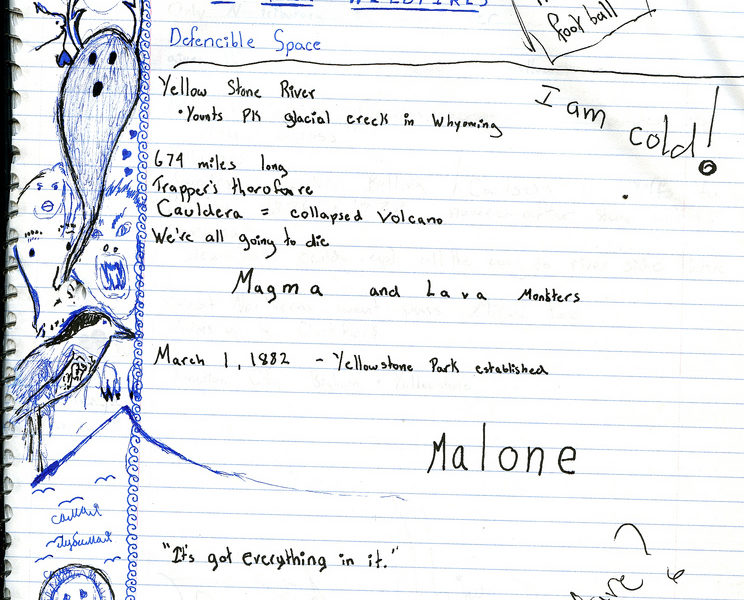 WILDFIRES
Defencible Space
football
I am cold!
Yellow Stone River
• Younts PK glacial creek in Whyoming
674 miles long
Trapper's thorofare
Cauldera = collapsed volcano
We're all going to die
Magma and Lava Monsters
March 1, 1882 - Yellowstone Park established
Malone
самая
любимая
"It's got everything in it."